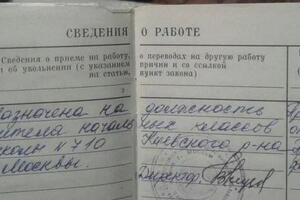 СВЕДЕНИЯ О РАБОТЕ
Сведения о приеме на работу, о переводах на другую работу
и об увольнении (с указанием причин и со ссылкой
на статью, пункт закона)
3
азначена на должность
ителя началь ных классов
школы № 710 Киевского р-на
Москвы.
Директор: